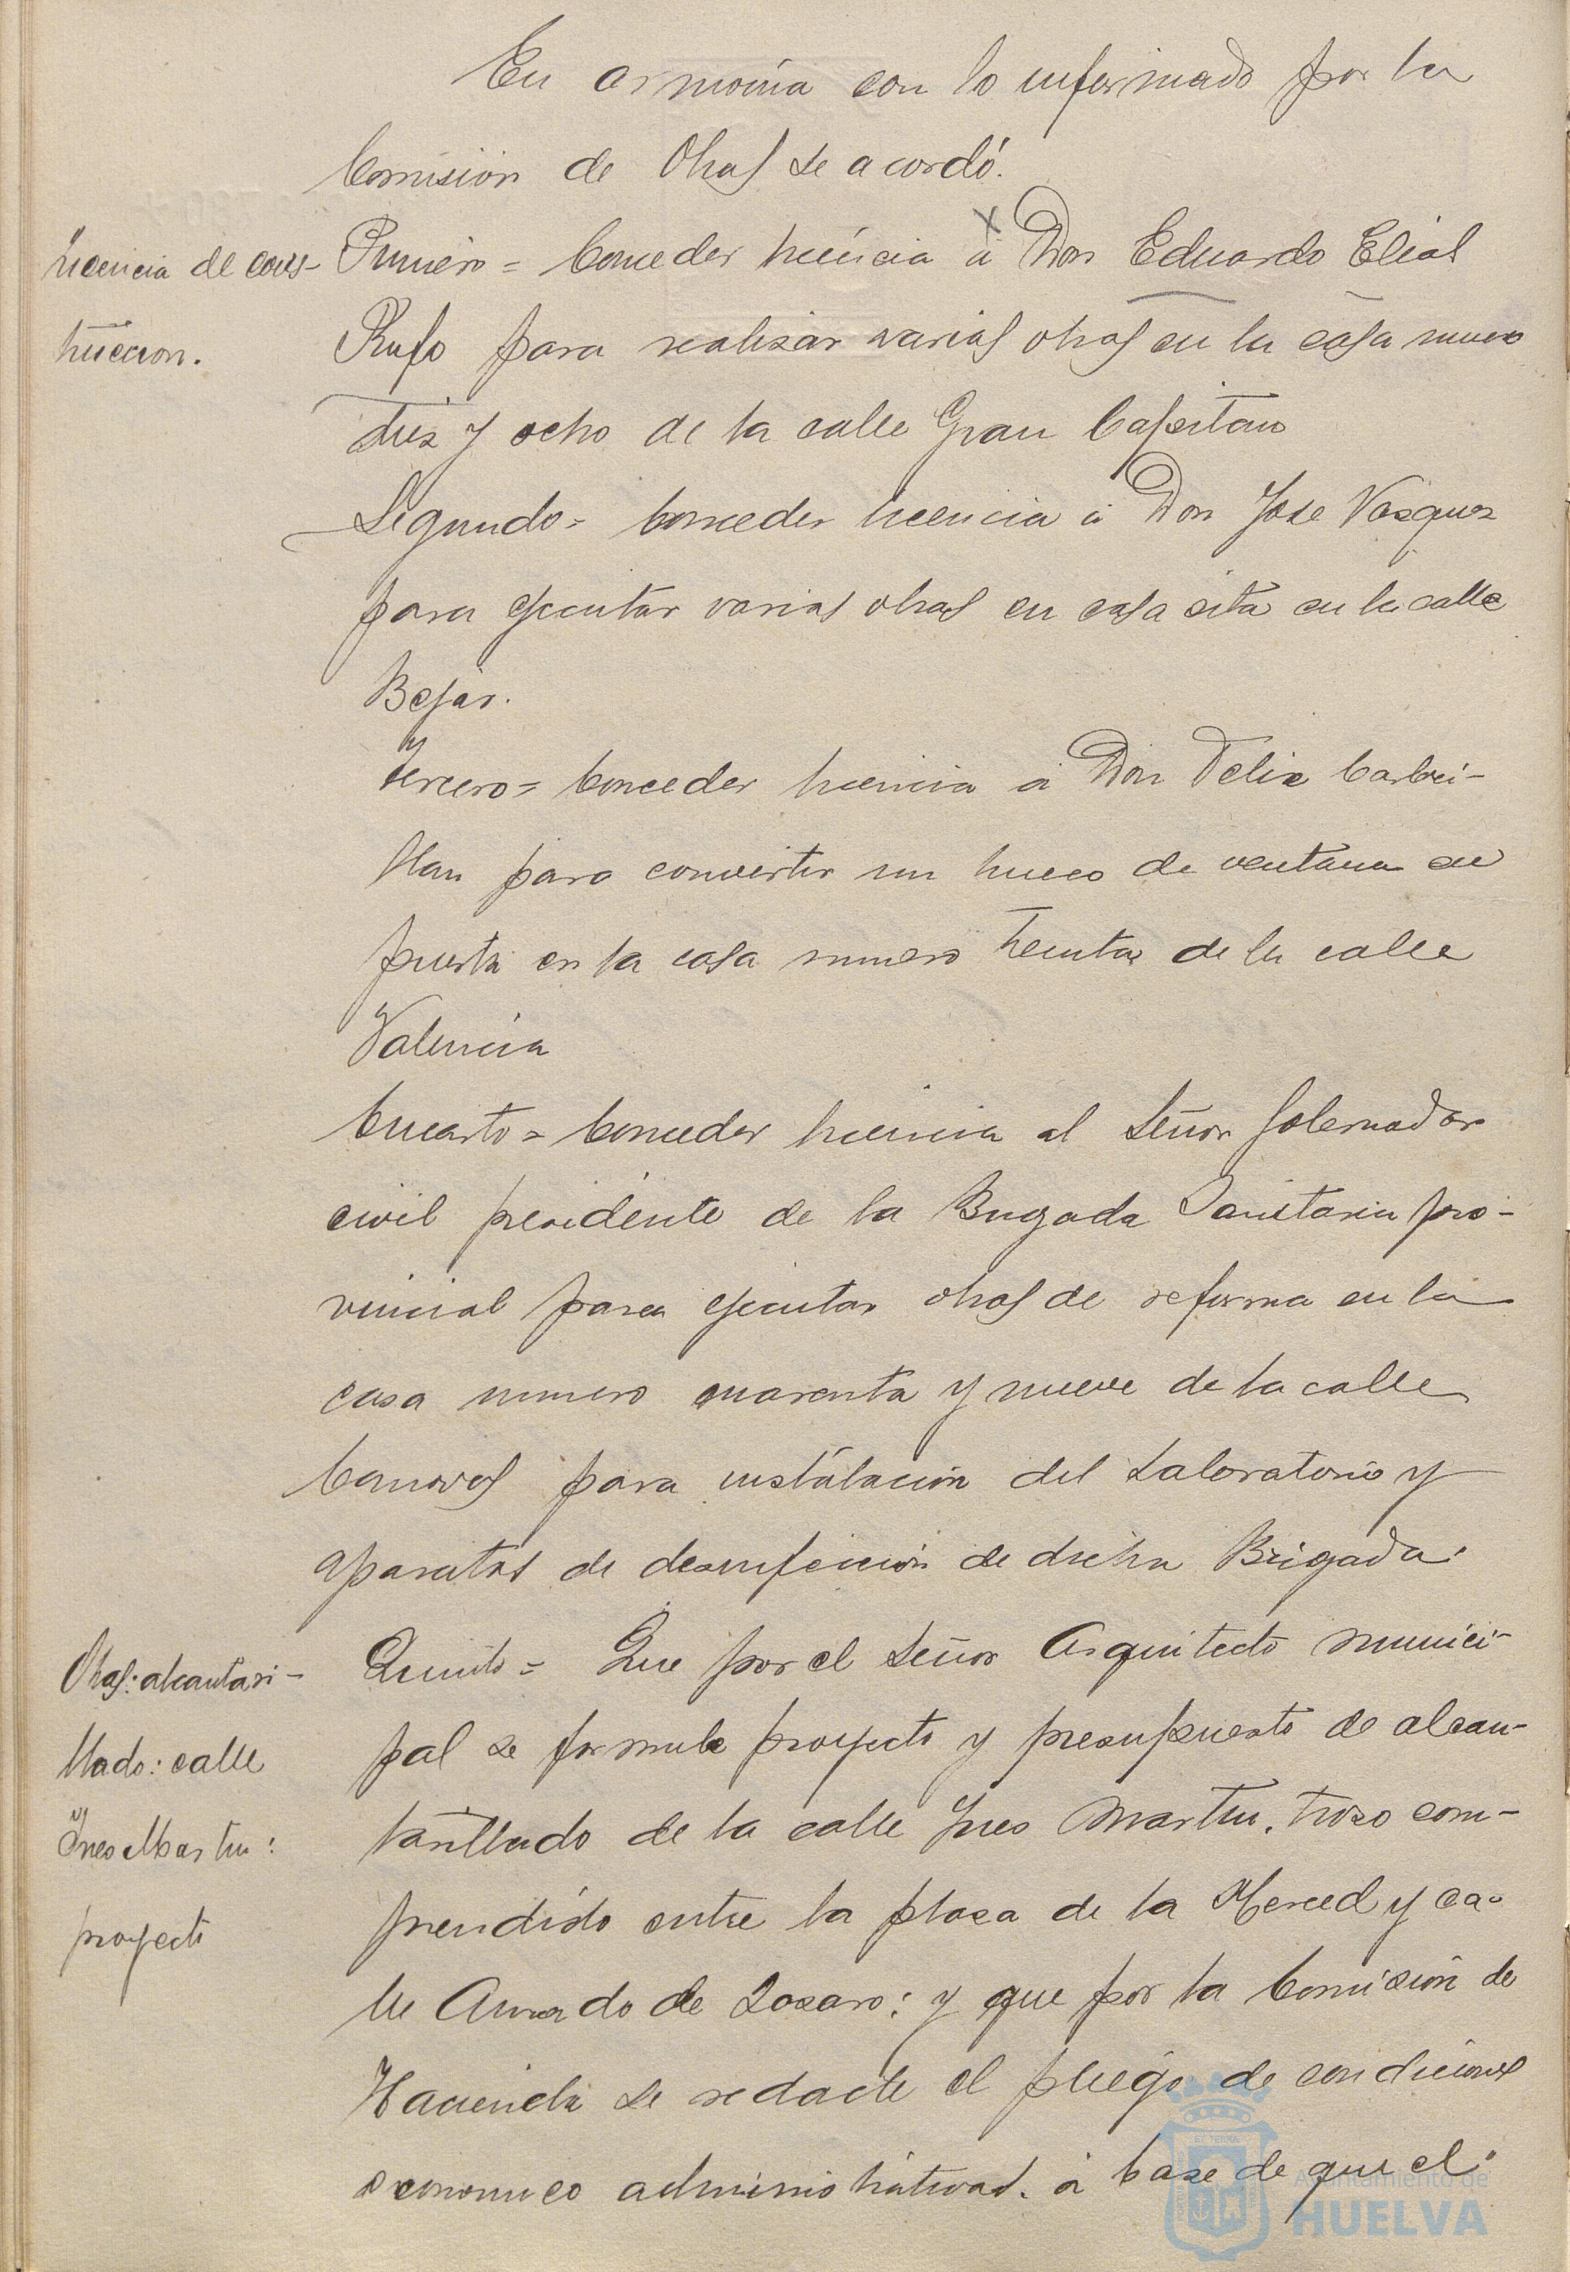 En armonia con lo informado por la
Comision de Obras se acordó.
Licencia de cons-
truccion.
Primero = Conceder licencia á Don Eduardo Elias
Rufo para realizar varias obras en la casa numero
diez y ocho de la calle Gran Capitan
Segundo = Conceder licencia á Don Jose Vazquez
para ejecutar varias obras en casa sita en la calle
Bejar.
Tercero = Conceder licencia á Don Felix Carbri-
llan para convertir un hueco de ventana en
puerta en la casa numero treinta de la calle
Valencia
Cuarto = Conceder licencia al Señor Gobernador
civil presidente de la Brigada Sanitaria pro-
vincial para ejecutar obras de reforma en la
casa numero cuarenta y nueve de la calle
Canovas para instalacion del Laboratorio y
aparatos de desinfeccion de dicha Brigada.
Obras: alcantari-
llado: calle
Ines Martin:
proyecto
Quinto = Que por el Señor Arquitecto munici-
pal se formule proyecto y presupuesto de alcan-
tarillado de la calle Ines Martin, trozo com-
prendido entre la plaza de la Merced y ca-
lle Amado de Lazaro: y que por la Comision de
Hacienda se redacte el pliego de condiciones
economico administrativas. á base de que el
Ayuntamiento de
HUELVA